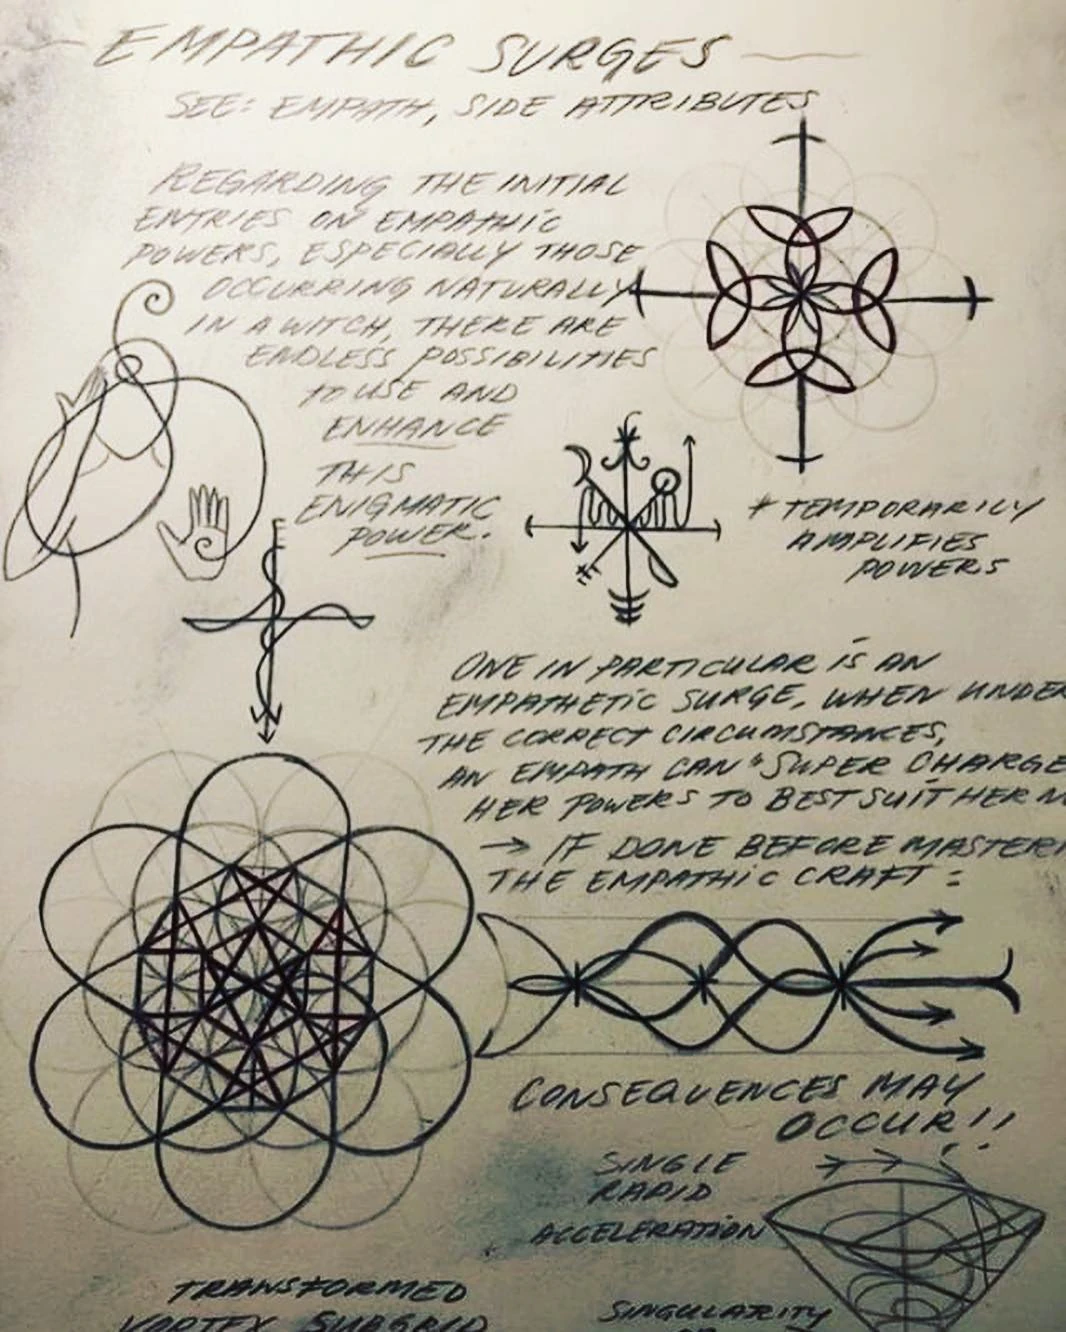 EMPATHIC SURGES
SEE: EMPATH, SIDE ATTRIBUTES
REGARDING THE INITIAL
ENTRIES ON EMPATHIC
POWERS, ESPECIALLY THOSE
OCCURRING NATURALLY
IN A WITCH, THERE ARE
ENDLESS POSSIBILITIES
TO USE AND
ENHANCE
THIS
ENIGMATIC
POWER.
* TEMPORARILY
AMPLIFIES
POWERS
ONE IN PARTICULAR IS AN
EMPATHETIC SURGE, WHEN UNDER
THE CORRECT CIRCUMSTANCES,
AN EMPATH CAN "SUPER CHARGE
HER POWERS TO BEST SUIT HER N
→ IF DONE BEFORE MASTERI
THE EMPATHIC CRAFT:
CONSEQUENCES MAY
OCCUR!!
SINGLE
RAPID
ACCELERATION
TRANSFORMED
VORTEX SUBGRID
SINGULARITY